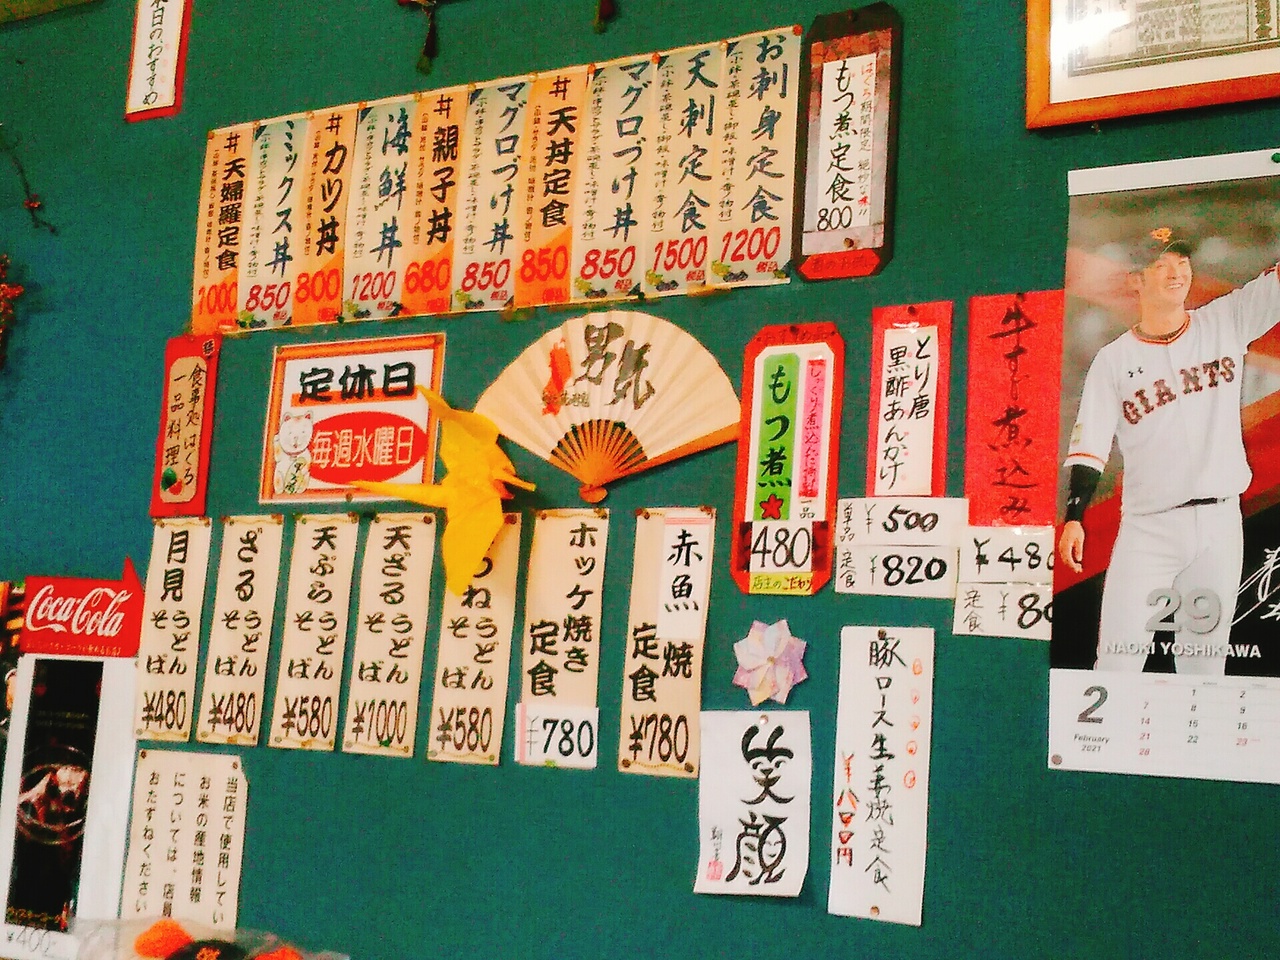 本日のおすすめ
お刺身定食
1200
税込
天刺定食
1500
税込
マグロづけ丼
850
税込
丼 天丼定食
850
マグロづけ丼
850
税込
丼 親子丼
680
海鮮丼
1200
税込
丼 カツ丼
800
ミックス丼
850
税込
丼 天婦羅定食
1000
もつ煮定食
800
食事処 はくろ
一品料理
定休日
毎週水曜日
男気
もつ煮
一品
480
店主のこだわり
とり唐
黒酢あんかけ
単品 ¥500
定食 ¥820
牛すじ煮込み
¥480
定食 ¥80
GIANTS
29
NAOKI YOSHIKAWA
2
February
2021
1 2
7 8 9
14 15 16
21 22 23
28
月見 うどん そば
¥480
ざる うどん そば
¥480
天ぷら うどん そば
¥580
天ざる うどん そば
¥1000
つね うどん そば
¥580
ホッケ焼き
定食
¥780
赤魚
焼
定食
¥780
笑顔
豚ロース生姜焼定食
¥八〇〇円
Coca-Cola
¥400
当店で使用してい
お米の産地情報
については、店員
おたずねください